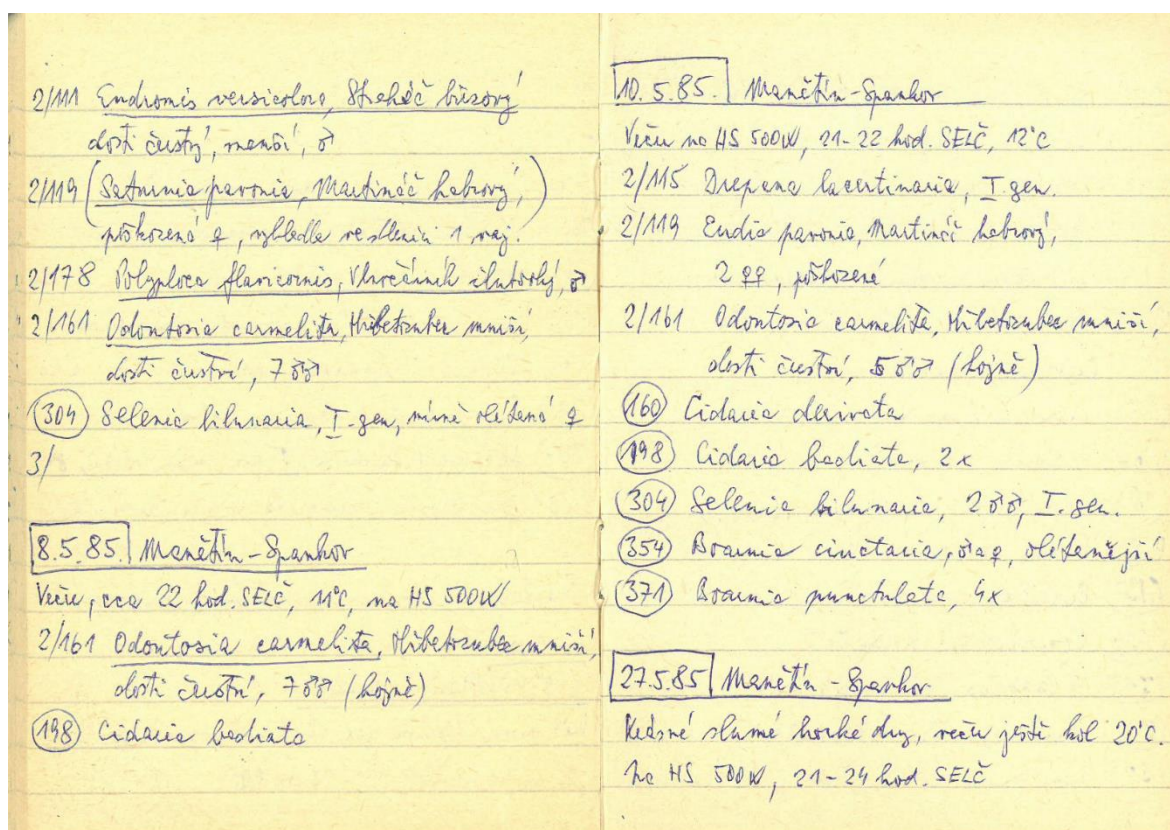 2/111 Endromis versicolora, Strakáč březový
dosti čerstvý, menší, ♂
2/119 (Saturnia pavonia, Martináč habrový,)
poškozená ♀, vykladla ve sklenici 1 vaj.
2/178 Polyploca flavicornis, žlutorohý, ♂
2/161 Odontosia carmelita, Hřbetozubec mniší,
dosti čerství, 7 ♂♂
304 Selenia bilunaria, I. gen, mírně olétaná ♀
3/
8.5.85. Manětín - Spankov
Večer, cca 22 hod. SELČ, 11°C, na HS 500W
2/161 Odontosia carmelita, Hřbetozubec mniší,
dosti čerství, 7 ♂♂ (hojně)
198 Cidaria badiata
10.5.85. Manětín - Spankov
Večer na HS 500W, 21-22 hod. SELČ, 12°C
2/115 Drepana lacertinaria, I. gen.
2/119 Eudia pavonia, Martináč habrový,
2 ♀♀, poškozené
2/161 Odontosia carmelita, Hřbetozubec mniší,
dosti čerství, 5 ♂♂ (hojně)
160 Cidaria derivata
198 Cidaria badiata, 2x
304 Selenia bilunaria, 2 ♂♂, I. gen.
354 Boarmia cinctaria, ♂ a ♀, olétanější
371 Boarmia punctulata, 4x
27.5.85 Manětín - Spankov
Krásné slunné horké dny, večer ještě kol 20°C.
Na HS 500W, 21-24 hod. SELČ